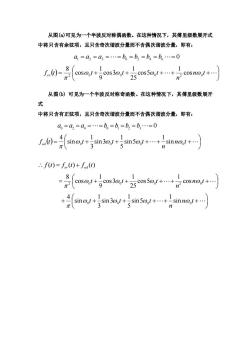 从图(a)可见为一个半波反对称偶函数。在这种情况下,其傅里级数展开式
中将只含有余弦项,且只含奇次谐波分量而不含偶次谐波分量,即有:
a₀ = a₂ = a₄ = ⋯ = b₁ = b₂ = b₃ = b₄ ⋯ = 0
f_ev(t) = 8/π² (cosω₀t + 1/9 cos3ω₀t + 1/25 cos5ω₀t + ⋯ + 1/n² cosnω₀t + ⋯)
从图(b) 可见为一个半波反对称奇函数。在这种情况下,其傅里级数展开
式
中将只含有正弦项,且只含奇次谐波分量而不含偶次谐波分量。即有:
a₀ = a₁ = a₂ = ⋯ = b₂ = b₄ = b₆ ⋯ = 0
f_od(t) = 4/π (sinω₀t + 1/3 sin3ω₀t + 1/5 sin5ω₀t + ⋯ + 1/n sinnω₀t + ⋯)
∴ f(t) = f_ev(t) + f_od(t)
= 8/π² (cosω₀t + 1/9 cos3ω₀t + 1/25 cos5ω₀t + ⋯ + 1/n² cosnω₀t + ⋯)
+ 4/π (sinω₀t + 1/3 sin3ω₀t + 1/5 sin5ω₀t + ⋯ + 1/n sinnω₀t + ⋯)